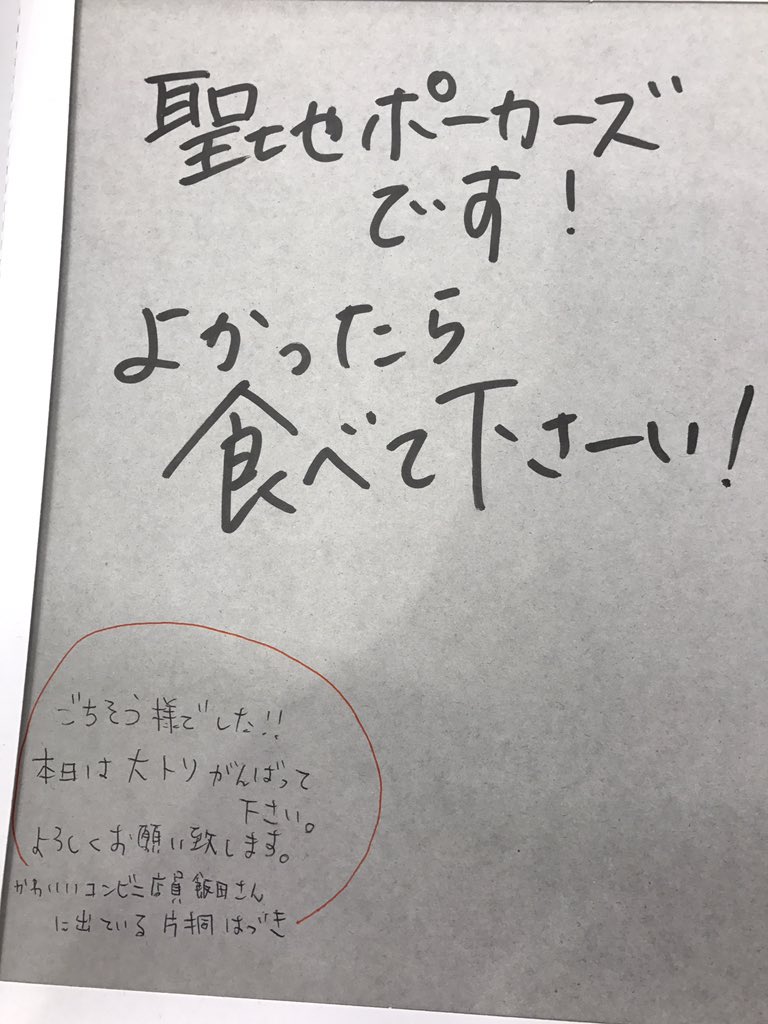 聖±せポーカーズ
です!
よかったら
食べて下さーい!
ごちそう様でした!!
本日は大トリがんばって
下さい。
よろしくお願い致します。
かわいいコンビニ店員飯田さん
に出ている片桐はづき